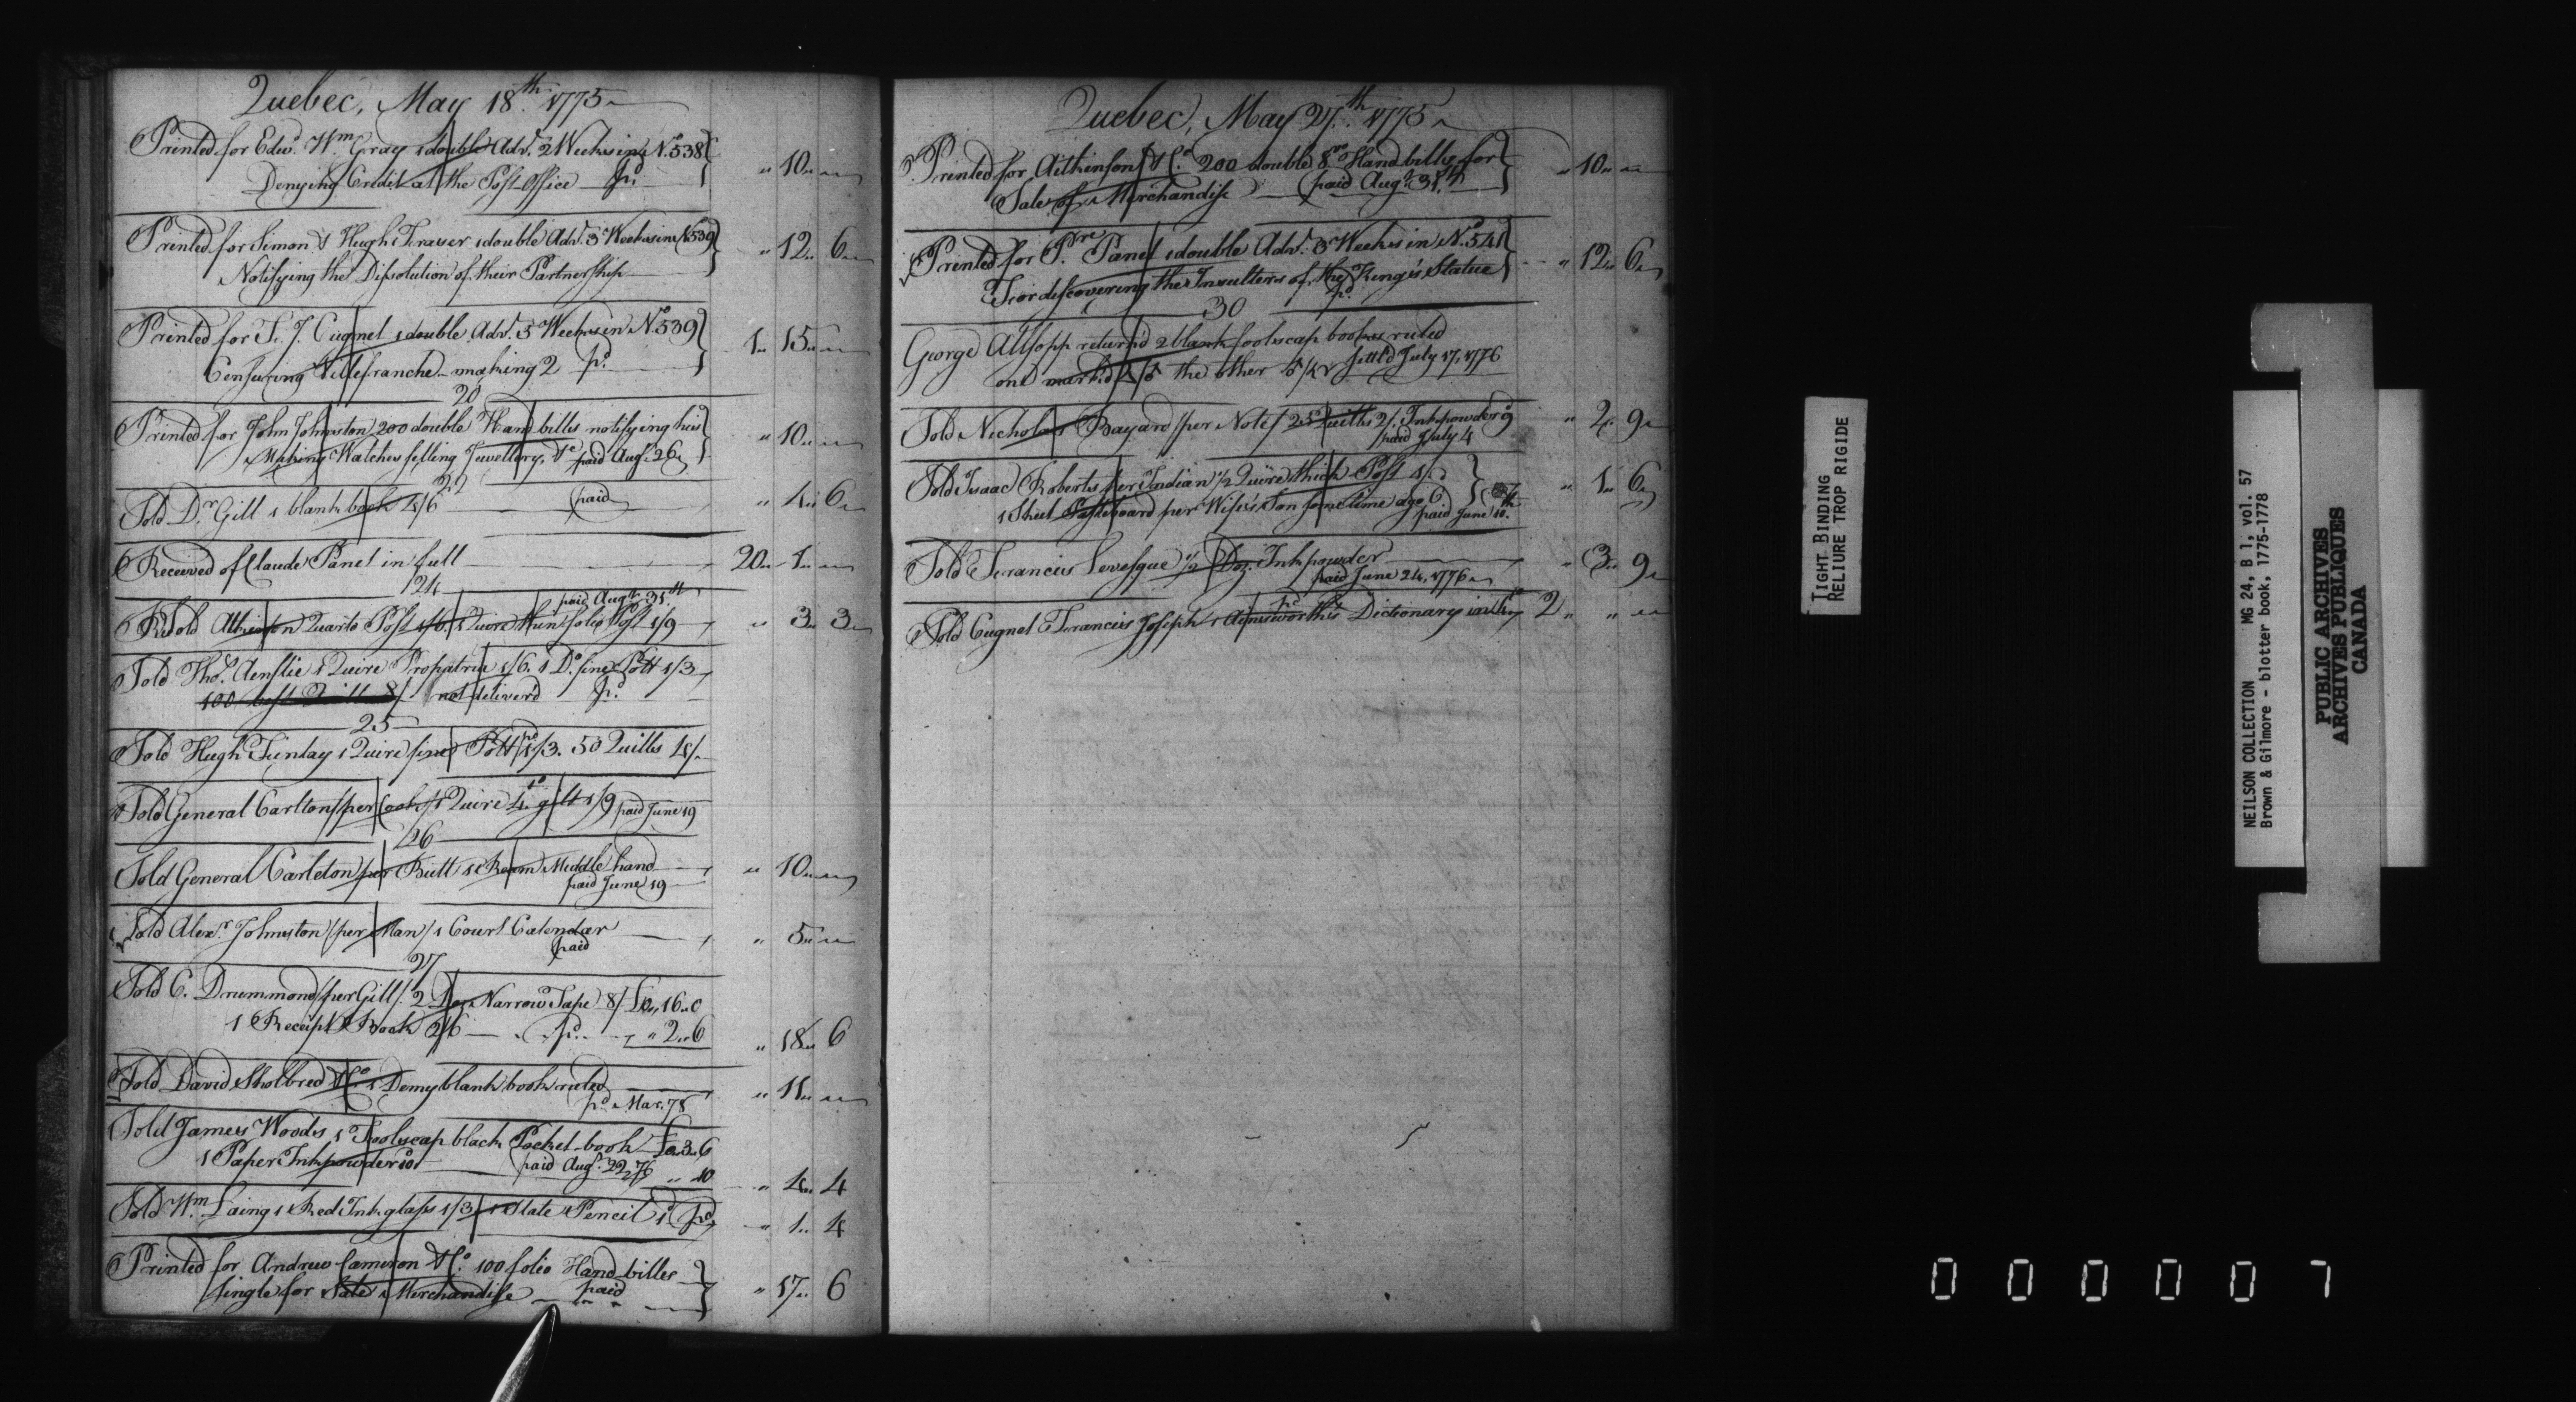 Quebec, May 18th 1775
Printed for Edw. Wm Gray 1 double Adv. 2 Weeks in N. 538
Denying Credit at the Post Office pd.
" 10 " "
Printed for Simon & Hugh Fraser 1 double Adv. 3 Weeks in N. 539
Notifying the Dissolution of their Partnership
" 12 " 6
Printed for F. J. Cugnet 1 double Adv. 3 Weeks in No. 539
Censuring Villefranche making 2 pd.
1 " 15 " "
20
Printed for John Johnston 200 double Hand bills notifying his
Making Watches selling Jewellery, &c paid Aug. 26
" 10 " "
22
Sold Dr. Gill 1 blank book 4/6 paid
" 4 " 6
Received of Claude Panet in full
20 " 1 " "
24
paid Augt. 31st
Sold Atkinson Quarto Post 1/6. 1 Quire thin folio Post 1/9
" 3 " 3
Sold Thos. Ainslie 1 Quire Propatria 1/6. 1 Do. fine Pott 1/3
100 best Quills 8/ not deliver'd pd.
25
Sold Hugh Finlay 1 Quire fine Pott 1/3. 50 Quills 4/
Sold General Carlton / per Cook / 1 Quire 4to gilt 1/9 paid June 19
26
Sold General Carleton per Butt 1 Ream Middle hand
paid June 19
" 10 " "
Sold Alexr. Johnston / per Man / 1 Court Calendar
paid
" 5 " "
27
Sold C. Drummond / per Gill / 2 Doz Narrow Tape 8/ £0 " 16 " 0
1 Receipt Book 2/6 pd. " 2 " 6
" 18 " 6
Sold David Sholbred & Co. 1 Demy blank book ruled
pd. Mar. 78
" 11 " "
Sold James Woods 1 Foolscap black Pocket-book £0 " 3 " 6
1 Paper Inkpowder 10 paid Aug. 22, 76 " " 10
" 4 " 4
Sold Wm Laing 1 Red Ink glass 1/3 1 Slate Pencil 1d pd.
" 1 " 4
Printed for Andrew Cameron & Co. 100 folio Hand-bills
single for Sale Merchandise paid
" 17 " 6
Quebec, May 27th 1775
Printed for Aitkinson & Co. 200 double 8vo Hand bills for
Sale of Merchandise paid Augt. 31st
" 10 " "
Printed for P.re Panet 1 double Adv. 3 Weeks in No. 541
For discovering the Insulters of the King's Statue
pd.
" 12 " 6
30
George Allsopp return'd 2 blank foolscap books ruled
one mark'd 4/5 the other 5/4 settl'd July 17, 1776
Sold Nicholas Bayard / per Note / 25 Quills 2/. Inkpowder 9
paid July 4
" 2 " 9
Sold Isaac Roberts per Indian 1/2 Quire thick Post 1/
1 Sheet Pasteboard per Wife's Son some time ago 6
paid June 10th
" 1 " 6
Sold Francis Levesque 1/2 Doz. Inkpowder
paid June 24, 1776
" 3 " 9
pd.
Sold Cugnet Francis Joseph 1 Ainsworth's Dictionary in 4to 2 " " "
TIGHT BINDING
RELIURE TROP RIGIDE
NEILSON COLLECTION MG 24, B 1, vol. 57
Brown & Gilmore - blotter book, 1775-1778
PUBLIC ARCHIVES
ARCHIVES PUBLIQUES
CANADA
000007